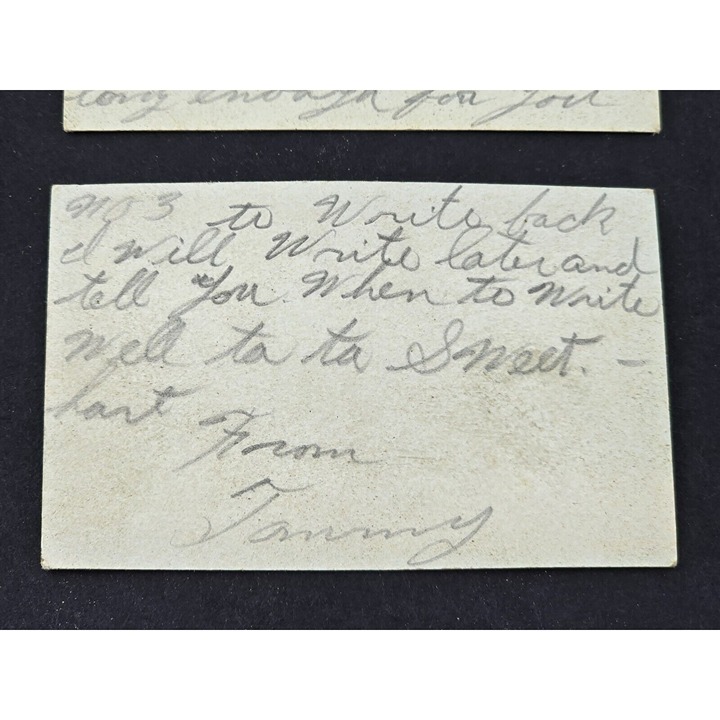 long enough for you
No 3 to Write back
I Will Write later and
tell You When to Write
Well ta ta Sweet. -
hart
From
Tommy